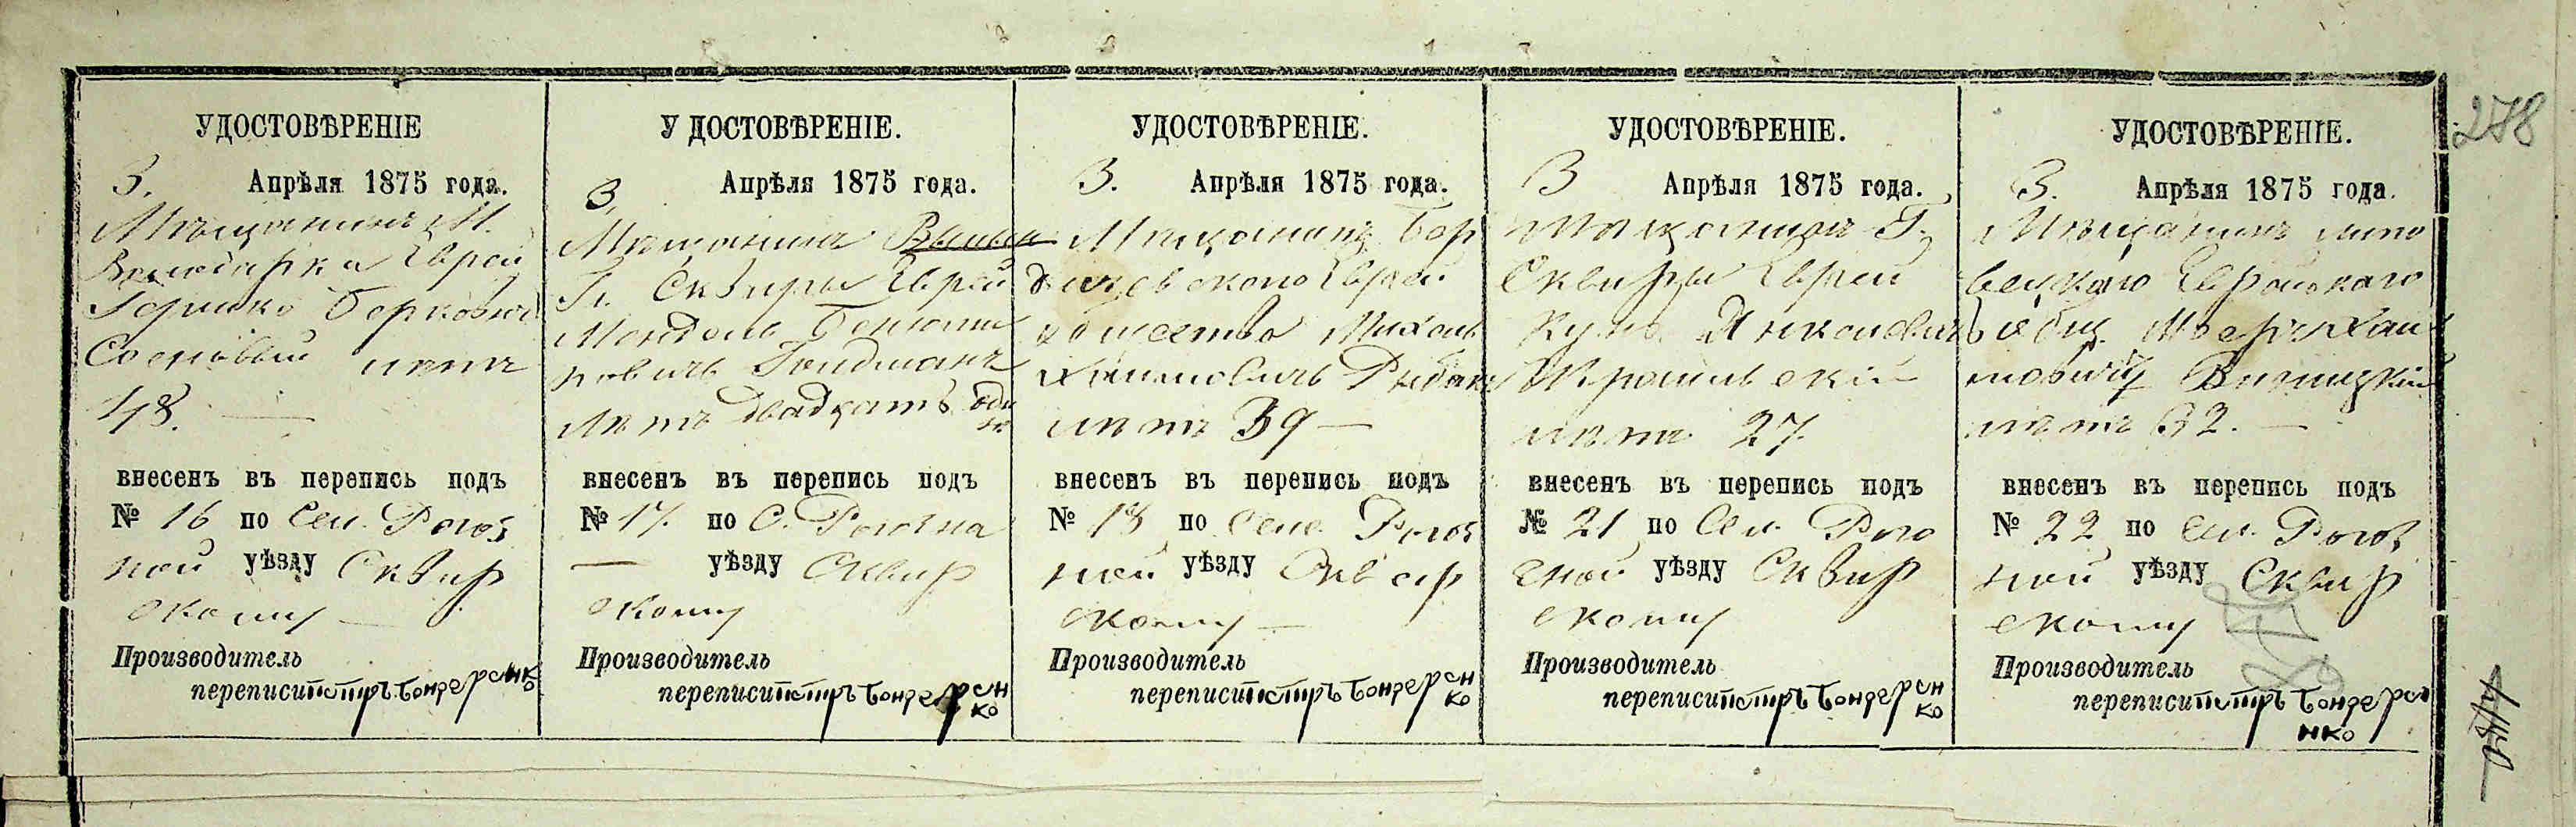 278
УДОСТОВѢРЕНІЕ
3. Апрѣля 1875 года.
Мѣщанинъ М.
Володарка Еврей
Гершко Берковичъ
лѣтъ
48.
внесенъ въ перепись подъ
№ 16 по Сел. Рогоз
ной уѣзду Сквир
скому
Производитель
переписи Петръ Бондаренко
УДОСТОВѢРЕНІЕ.
3. Апрѣля 1875 года.
Мѣщанинъ
Г. Сквиры Еврей
Мендель
повичъ
лѣтъ двадцать оди
нъ
внесенъ въ перепись подъ
№ 17. по С. Рогозна
уѣзду Сквир
скому
Производитель
переписи Петръ Бондарен
ко
УДОСТОВѢРЕНІЕ.
3. Апрѣля 1875 года.
Мѣщанинъ Бер
дичевского Еврей
общества Михель
Хаимовичъ
лѣтъ 39 —
внесенъ въ перепись подъ
№ 18 по Селе. Рогоз
ной уѣзду Сквир
скому —
Производитель
переписи Петръ Бондарен
ко
УДОСТОВѢРЕНІЕ.
3 Апрѣля 1875 года.
Мѣщанинъ Г.
Сквиры Еврей
Янкелевичъ
лѣтъ 27.
внесенъ въ перепись подъ
№ 21 по Сел. Рого
зной уѣзду Сквир
скому
Производитель
переписи Петръ Бондарен
ко
УДОСТОВѢРЕНІЕ.
3. Апрѣля 1875 года.
Мѣщанинъ липо
вецкаго Еврейскаго
общ. Меер Хаи
мовичъ Винницкій
лѣтъ 32. —
внесенъ въ перепись подъ
№ 22 по Сел. Рогоз
ной уѣзду Сквир
скому
Производитель
переписи Петръ Бондаре
нко